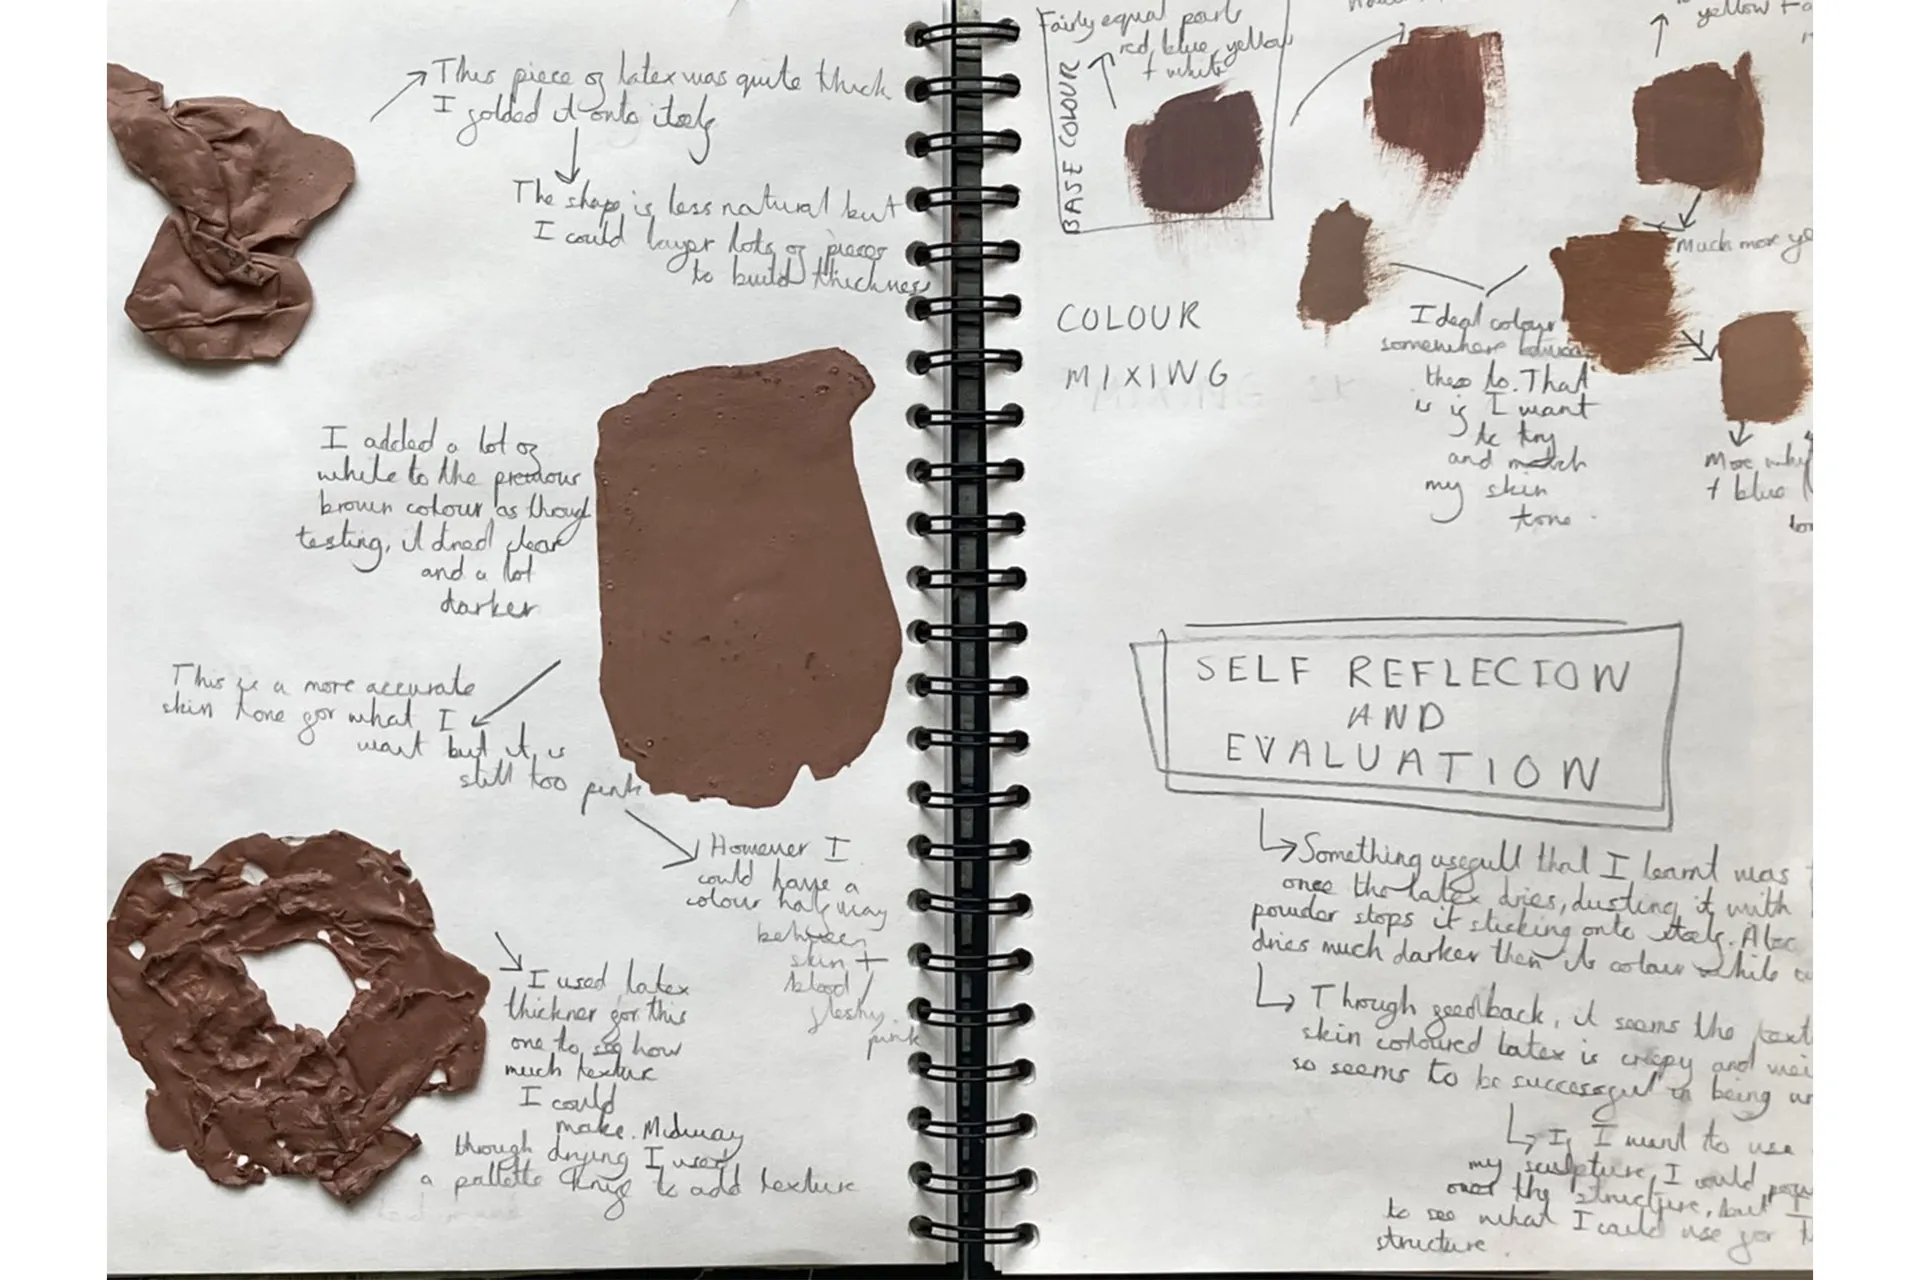 This piece of latex was quite thick
I folded it onto itself
The shape is less natural but
I could layer lots of pieces
to build thickness
I added a lot of
white to the previous
brown colour as though
testing, it dried clear
and a lot
darker
This is a more accurate
skin tone for what I
want but it is
still too pink
However I
could have a
colour half way
between
skin +
blood /
fleshy
pink
I used latex
thickner for this
one to see how
much texture
I could
make. Midway
through drying I used
a pallette knife to add texture
Fairly equal parts
red, blue, yellow
+ white
BASE COLOUR
yellow +
Much more
COLOUR
MIXING
Ideal colour
somewhere between
these to. That
is if I want
to try
and match
my skin
tone.
More
+ blue
SELF REFLECION
AND
EVALUATION
Something usefull that I learnt was
once the latex dries, dusting it with
powder stops it sticking onto itself. Also
dries much darker then its colour while
Through feedback, it seems the
skin coloured latex is creepy and
so seems to be successful in being
If I want to use
my sculpture, I could
over the structure, but I
to see what I could use for
structure.